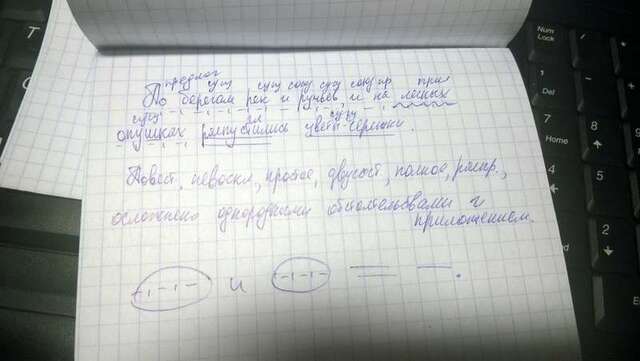 предлог сущ сущ союз сущ союз пр прил
По берегам рек и ручьёв, и на лесных
сущ гл сущ
опушках распустились цветы черёмухи.
Повест, невоскл, простое, двусост, полное, распр.,
осложнено однородными обстоятельствами и
приложением.
и
Num
Lock
1
Del
7
Home
4
8
5
2
T